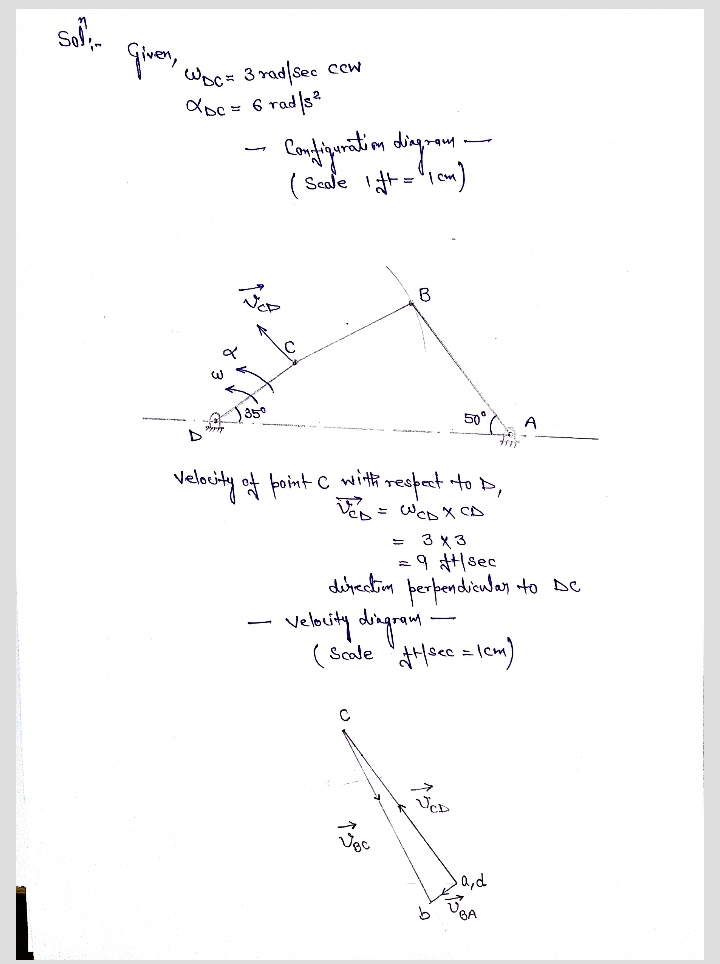 Solⁿ:-
Given,
ω_DC = 3 rad/sec ccw
α_DC = 6 rad/s²
— Configuration diagram —
( Scale 1 ft = 1 cm)
B
V_CD
C
α
ω
35°
50°
A
D
Velocity of point C with respect to D,
V_CD = ω_CD × CD
= 3 × 3
= 9 ft/sec
direction perpendicular to DC
— Velocity diagram —
( Scale ft/sec = 1cm)
C
V_CD
V_BC
a,d
b
V_BA